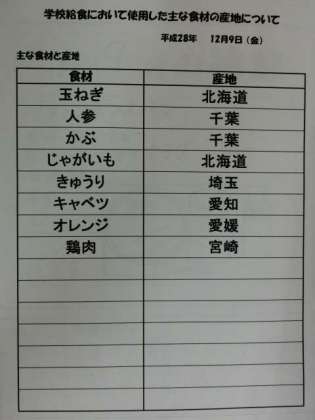 学校給食において使用した主な食材の産地について
平成28年 12月9日(金)
主な食材と産地
食材 産地
玉ねぎ 北海道
人参 千葉
かぶ 千葉
じゃがいも 北海道
きゅうり 埼玉
キャベツ 愛知
オレンジ 愛媛
鶏肉 宮崎